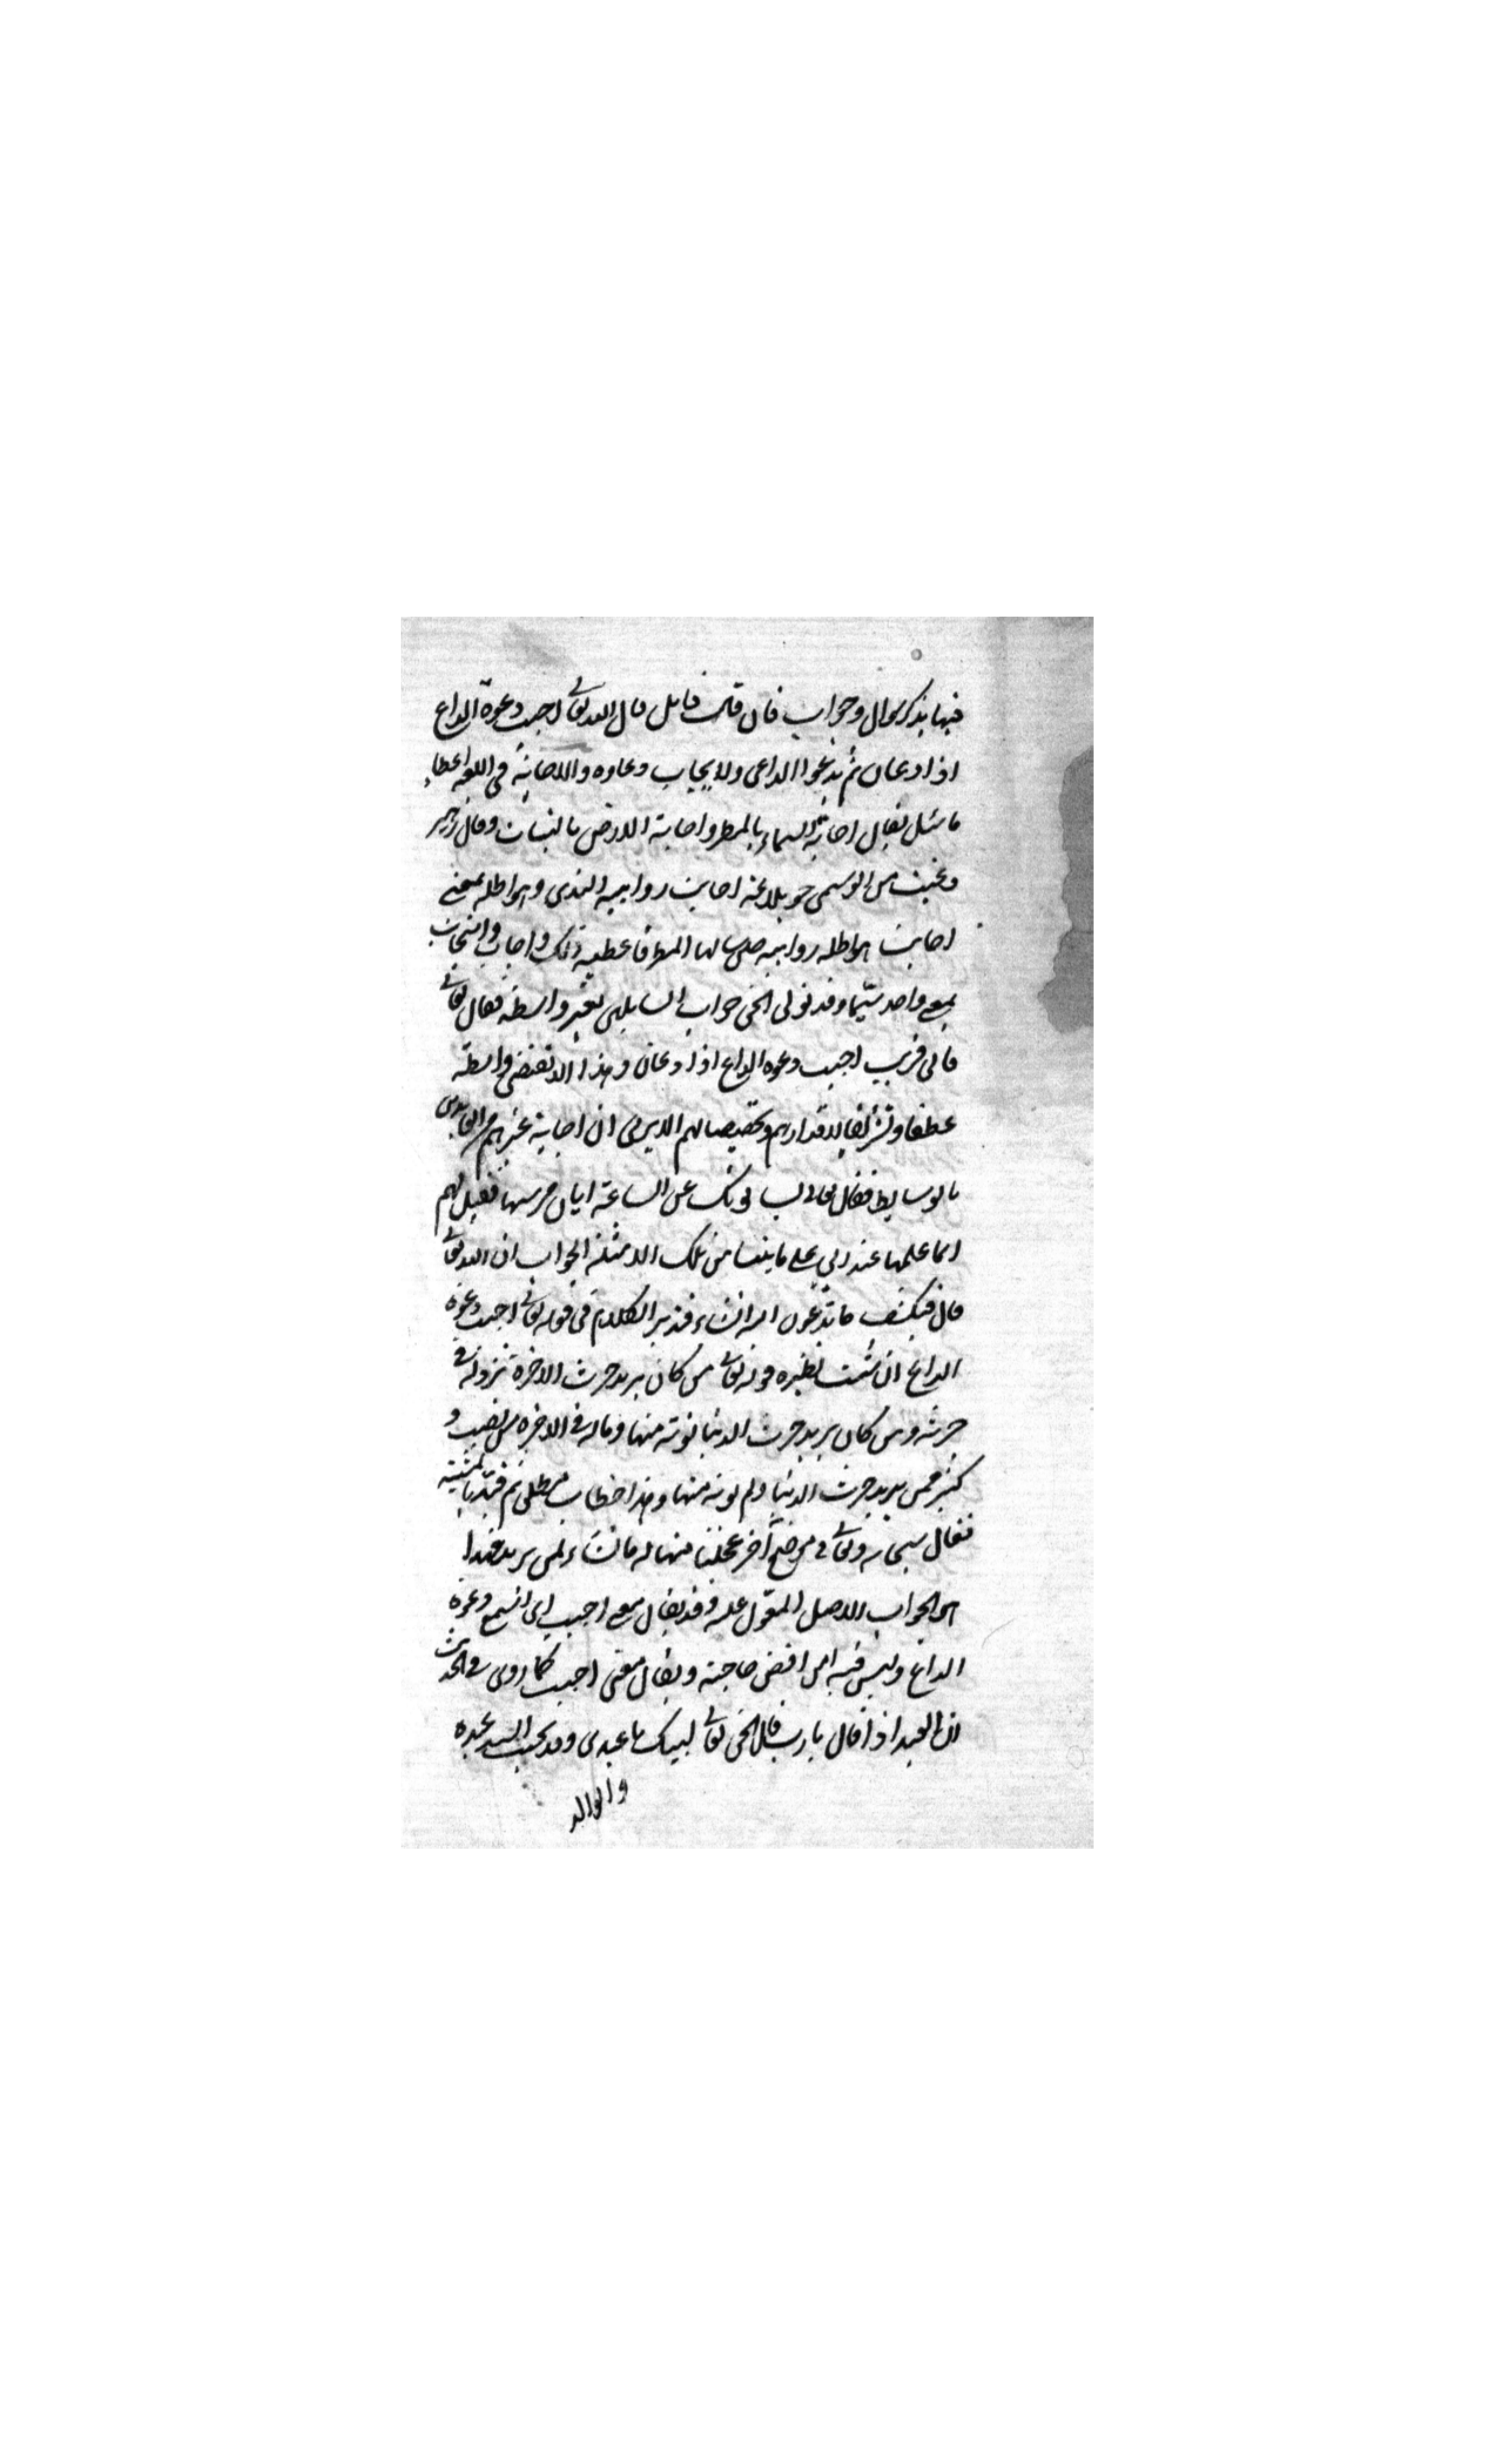 فيها بذكر سوال وجواب فان قلت قايل قال الله تعالى اجيب دعوة الداع
اذا دعان ثم يدعوا الداعى ولا يجاب دعاوه والاجابة فى اللغه اعطاء
ما سئل يقال اجابة السماء بالمطر واجابة الارض بالنبات وقال زهير
وغيث من الوسمى حو تلاعه اجابت روابيه الندى وهواطله بمعنى
اجابت هواطله روابيه حين سالها المطر فاعطيه ذلك واجاب واستجاب
بمعى واحد سيما وقد تولى الحق جواب السايلين بغير واسطة فقال تعالى
فانى قريب اجيب دعوه الداع اذا دعان وهذا لا تقتضى واسطة
عطفا وتشريفا لاقدارهم وتخصيصا لهم الا يرى ان اجابة غيرهم من
بالوسايط فقال تعالى يسالونك عن الساعة ايان مرسها فقيل لهم
انما علمها عند ربي على ما بينا من تلك الامثلة الجواب ان الله تعالى
قال فيكشف ما تدعون اليه ان شاء فتدبر الكلام فى قوله تعالى اجيب دعوة
الداع ان شئت نظيره قوله تعالى من كان يريد حرث الاخرة نزد له فى
حرثه ومن كان يريد حرث الدنيا نوته منها وماله فى الاخره من نصيب و
كثير ممن يريد حرث الدنيا ولم يوته منها وهذا خطاب مطلق ثم قيد بالمشيته
فقال سبحانه وتعالى فى موضع آخر عجلنا منها له ما نشاء لمن يريد فهذا
هو الجواب الاصل المعول عليه وقد يقال معى اجيب اى اسمع دعوة
الداع وليس فيه انى اقض حاجته ويقال معنى اجيب كما روى فى الحديث
ان العبد اذا قال يا رب قال الحق تعالى لبيك يا عبدى وقد يجيب السيد عبده
والوالد